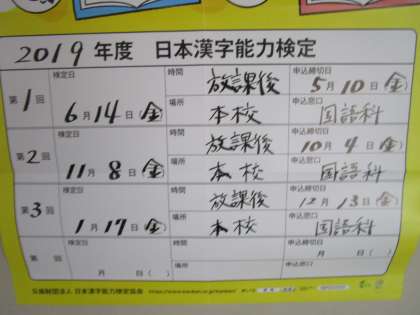 2019年度 日本漢字能力検定
第1回 検定日 6月14日(金) 時間 放課後 申込締切日 5月10日(金)
場所 本校 申込窓口 国語科
第2回 検定日 11月8日(金) 時間 放課後 申込締切日 10月4日(金)
場所 本校 申込窓口 国語科
第3回 検定日 1月17日(金) 時間 放課後 申込締切日 12月13日(金)
場所 本校 申込窓口 国語科
第 回 検定日 月 日( ) 時間 申込締切日 月 日( )
場所 申込窓口
公益財団法人 日本漢字能力検定協会